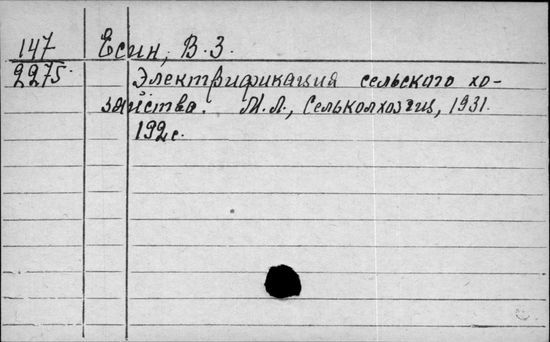 147 Есин, В. З.
2275 Электрификация сельского хо-
зяйства. М. Л., Сельколхозгиз, 1931.
192 с.